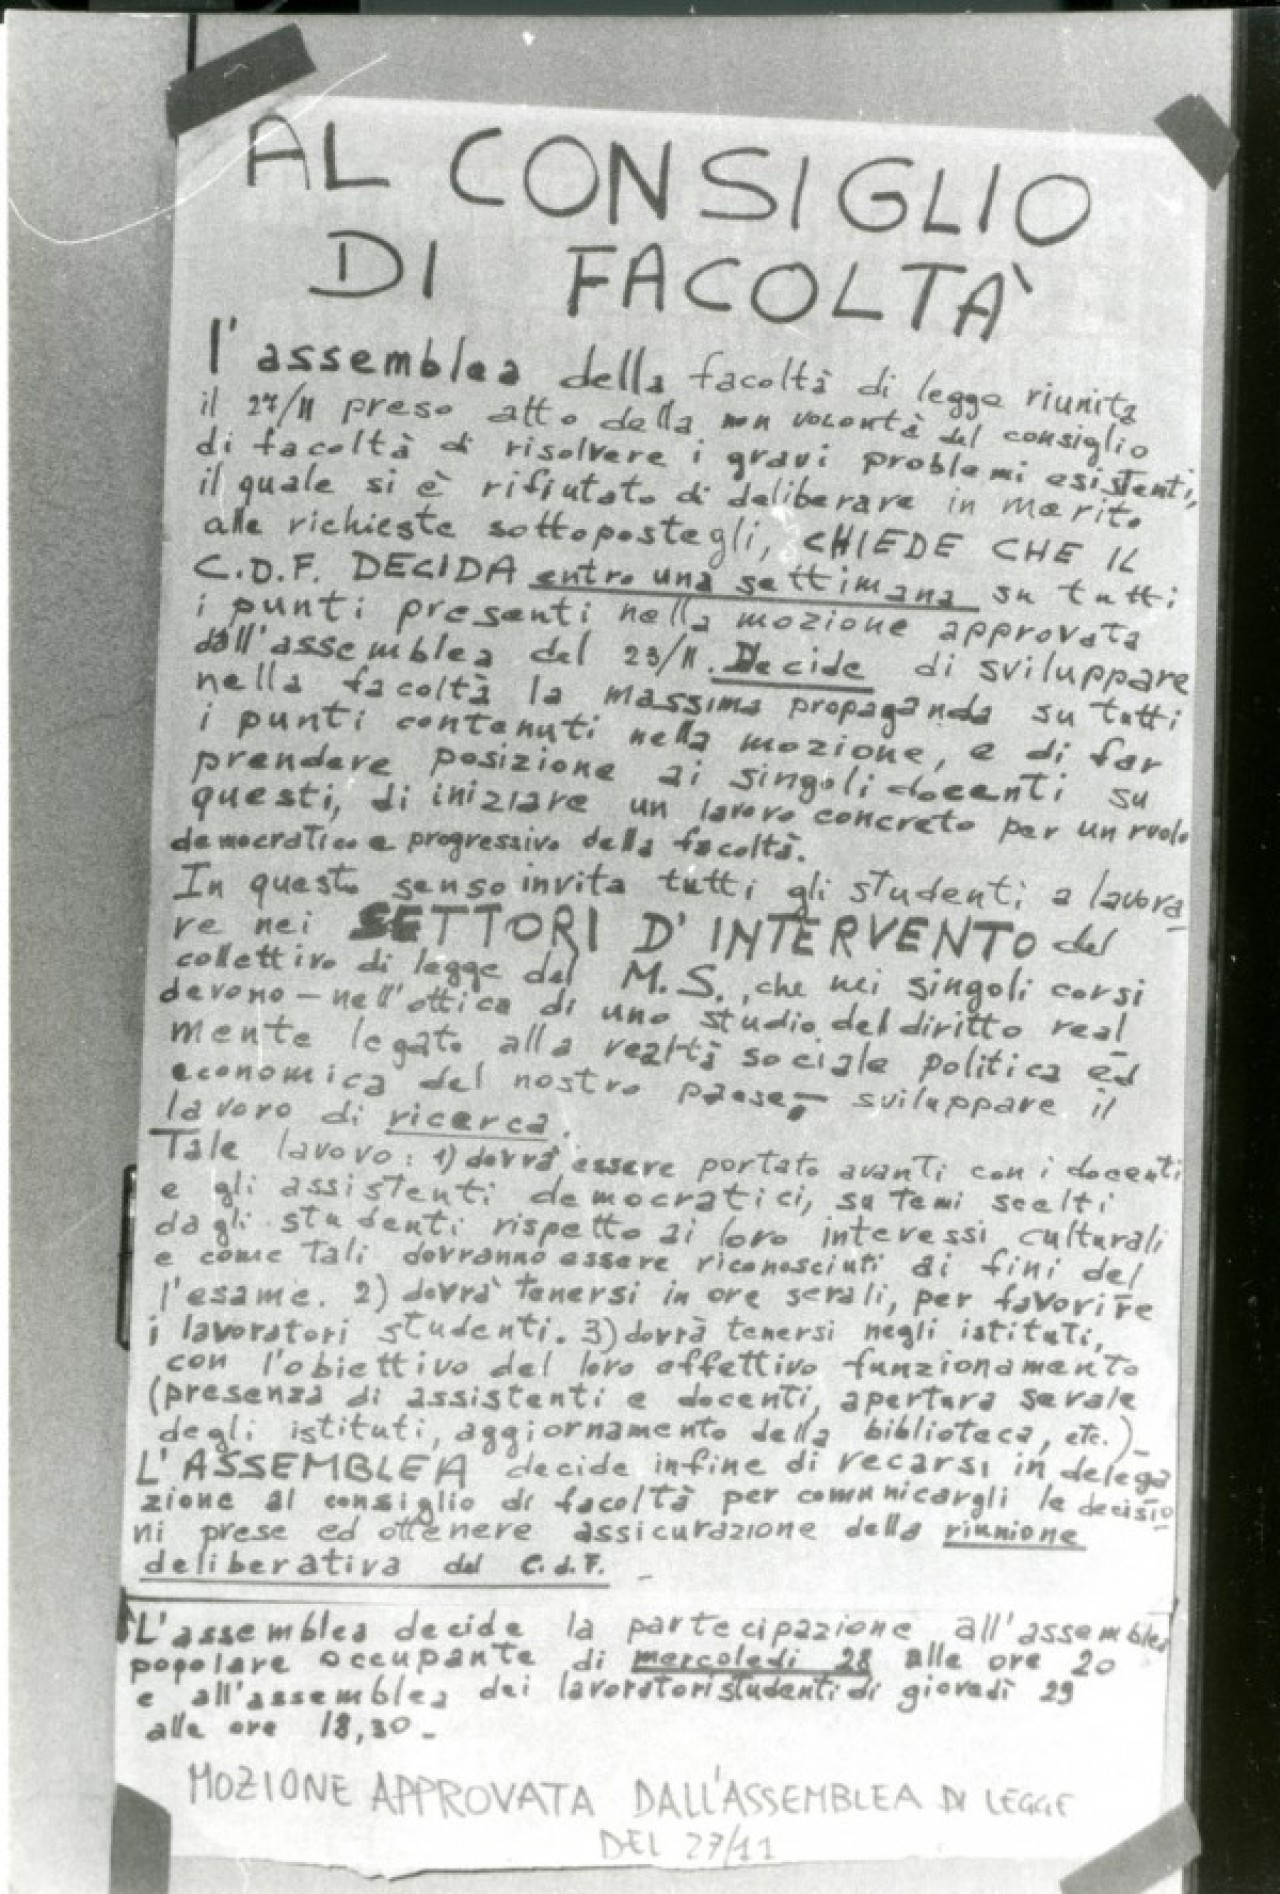 AL CONSIGLIO
DI FACOLTÀ
l'assemblea della facoltà di legge riunita
il 27/11 preso atto della non volontà del consiglio
di facoltà di risolvere i gravi problemi esistenti,
il quale si è rifiutato di deliberare in merito
alle richieste sottopostegli, CHIEDE CHE IL
C.D.F. DECIDA entro una settimana su tutti
i punti presenti nella mozione approvata
dall'assemblea del 23/11. Decide di sviluppare
nella facoltà la massima propaganda su tutti
i punti contenuti nella mozione, e di far
prendere posizione ai singoli docenti su
questi, di iniziare un lavoro concreto per un ruolo
democratico e progressivo della facoltà.
In questo senso invita tutti gli studenti a lavora
re nei SETTORI D'INTERVENTO del
collettivo di legge del M.S., che nei singoli corsi
devono - nell'ottica di uno studio del diritto real
mente legato alla realtà sociale politica ed
economica del nostro paese, - sviluppare il
lavoro di ricerca.
Tale lavoro: 1) dovrà essere portato avanti con i docenti
e gli assistenti democratici, su temi scelti
dagli studenti rispetto ai loro interessi culturali
e come tali dovranno essere riconosciuti ai fini del
l'esame. 2) dovrà tenersi in ore serali, per favorire
i lavoratori studenti. 3) dovrà tenersi negli istituti,
con l'obiettivo del loro effettivo funzionamento
(presenza di assistenti e docenti, apertura serale
degli istituti, aggiornamento della biblioteca, etc.)_
L'ASSEMBLEA decide infine di recarsi in delega
zione al consiglio di facoltà per comunicargli le decisio
ni prese ed ottenere assicurazione della riunione
deliberativa del C.d.F. _
L'assemblea decide la partecipazione all'assemblea
popolare occupante di mercoledì 28 alle ore 20
e all'assemblea dei lavoratori studenti di giovedì 29
alle ore 18,30 _
MOZIONE APPROVATA DALL'ASSEMBLEA DI LEGGE
DEL 27/11